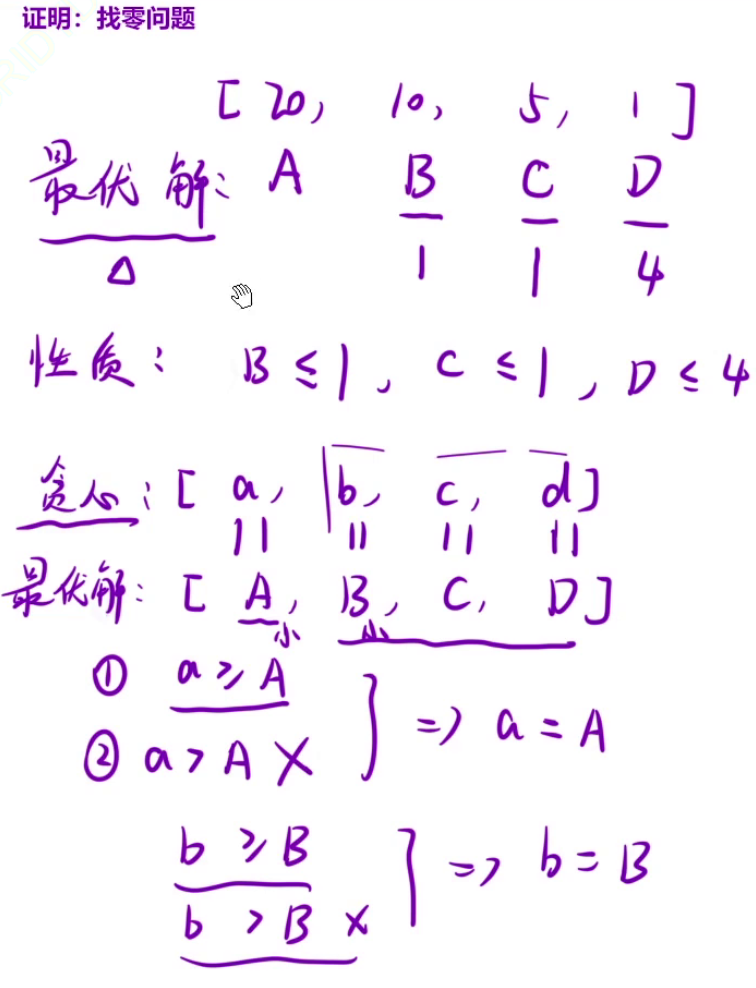 证明：找零问题
[ 20, 10, 5, 1 ]
最优解： A B C D
△ 1 1 4
性质： B ≤ 1, C ≤ 1, D ≤ 4
贪心：[ a, b, c, d ]
|| || || ||
最优解：[ A, B, C, D ]
小 小
① a ≥ A
② a > A ×
} => a = A
b ≥ B
b > B ×
} => b = B